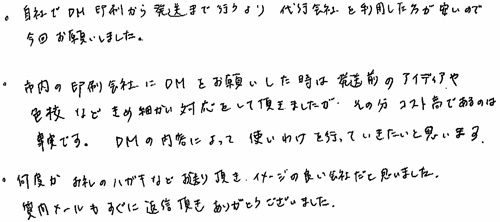 。自社でDM印刷から発送まで行うより 代行会社を利用した方が安いので
今回お願いしました。
。市内の印刷会社にDMをお願いした時は発送前のアイディアや
色校などきめ細かい対応をして頂きましたが、その分コスト高であるのは
事実です。 DMの内容によって 使いわけを行っていきたいと思います。
・何度かお礼のハガキなど送り頂き、イメージの良い会社だと思いました。
質問メールもすぐに返信頂きありがとうございました。